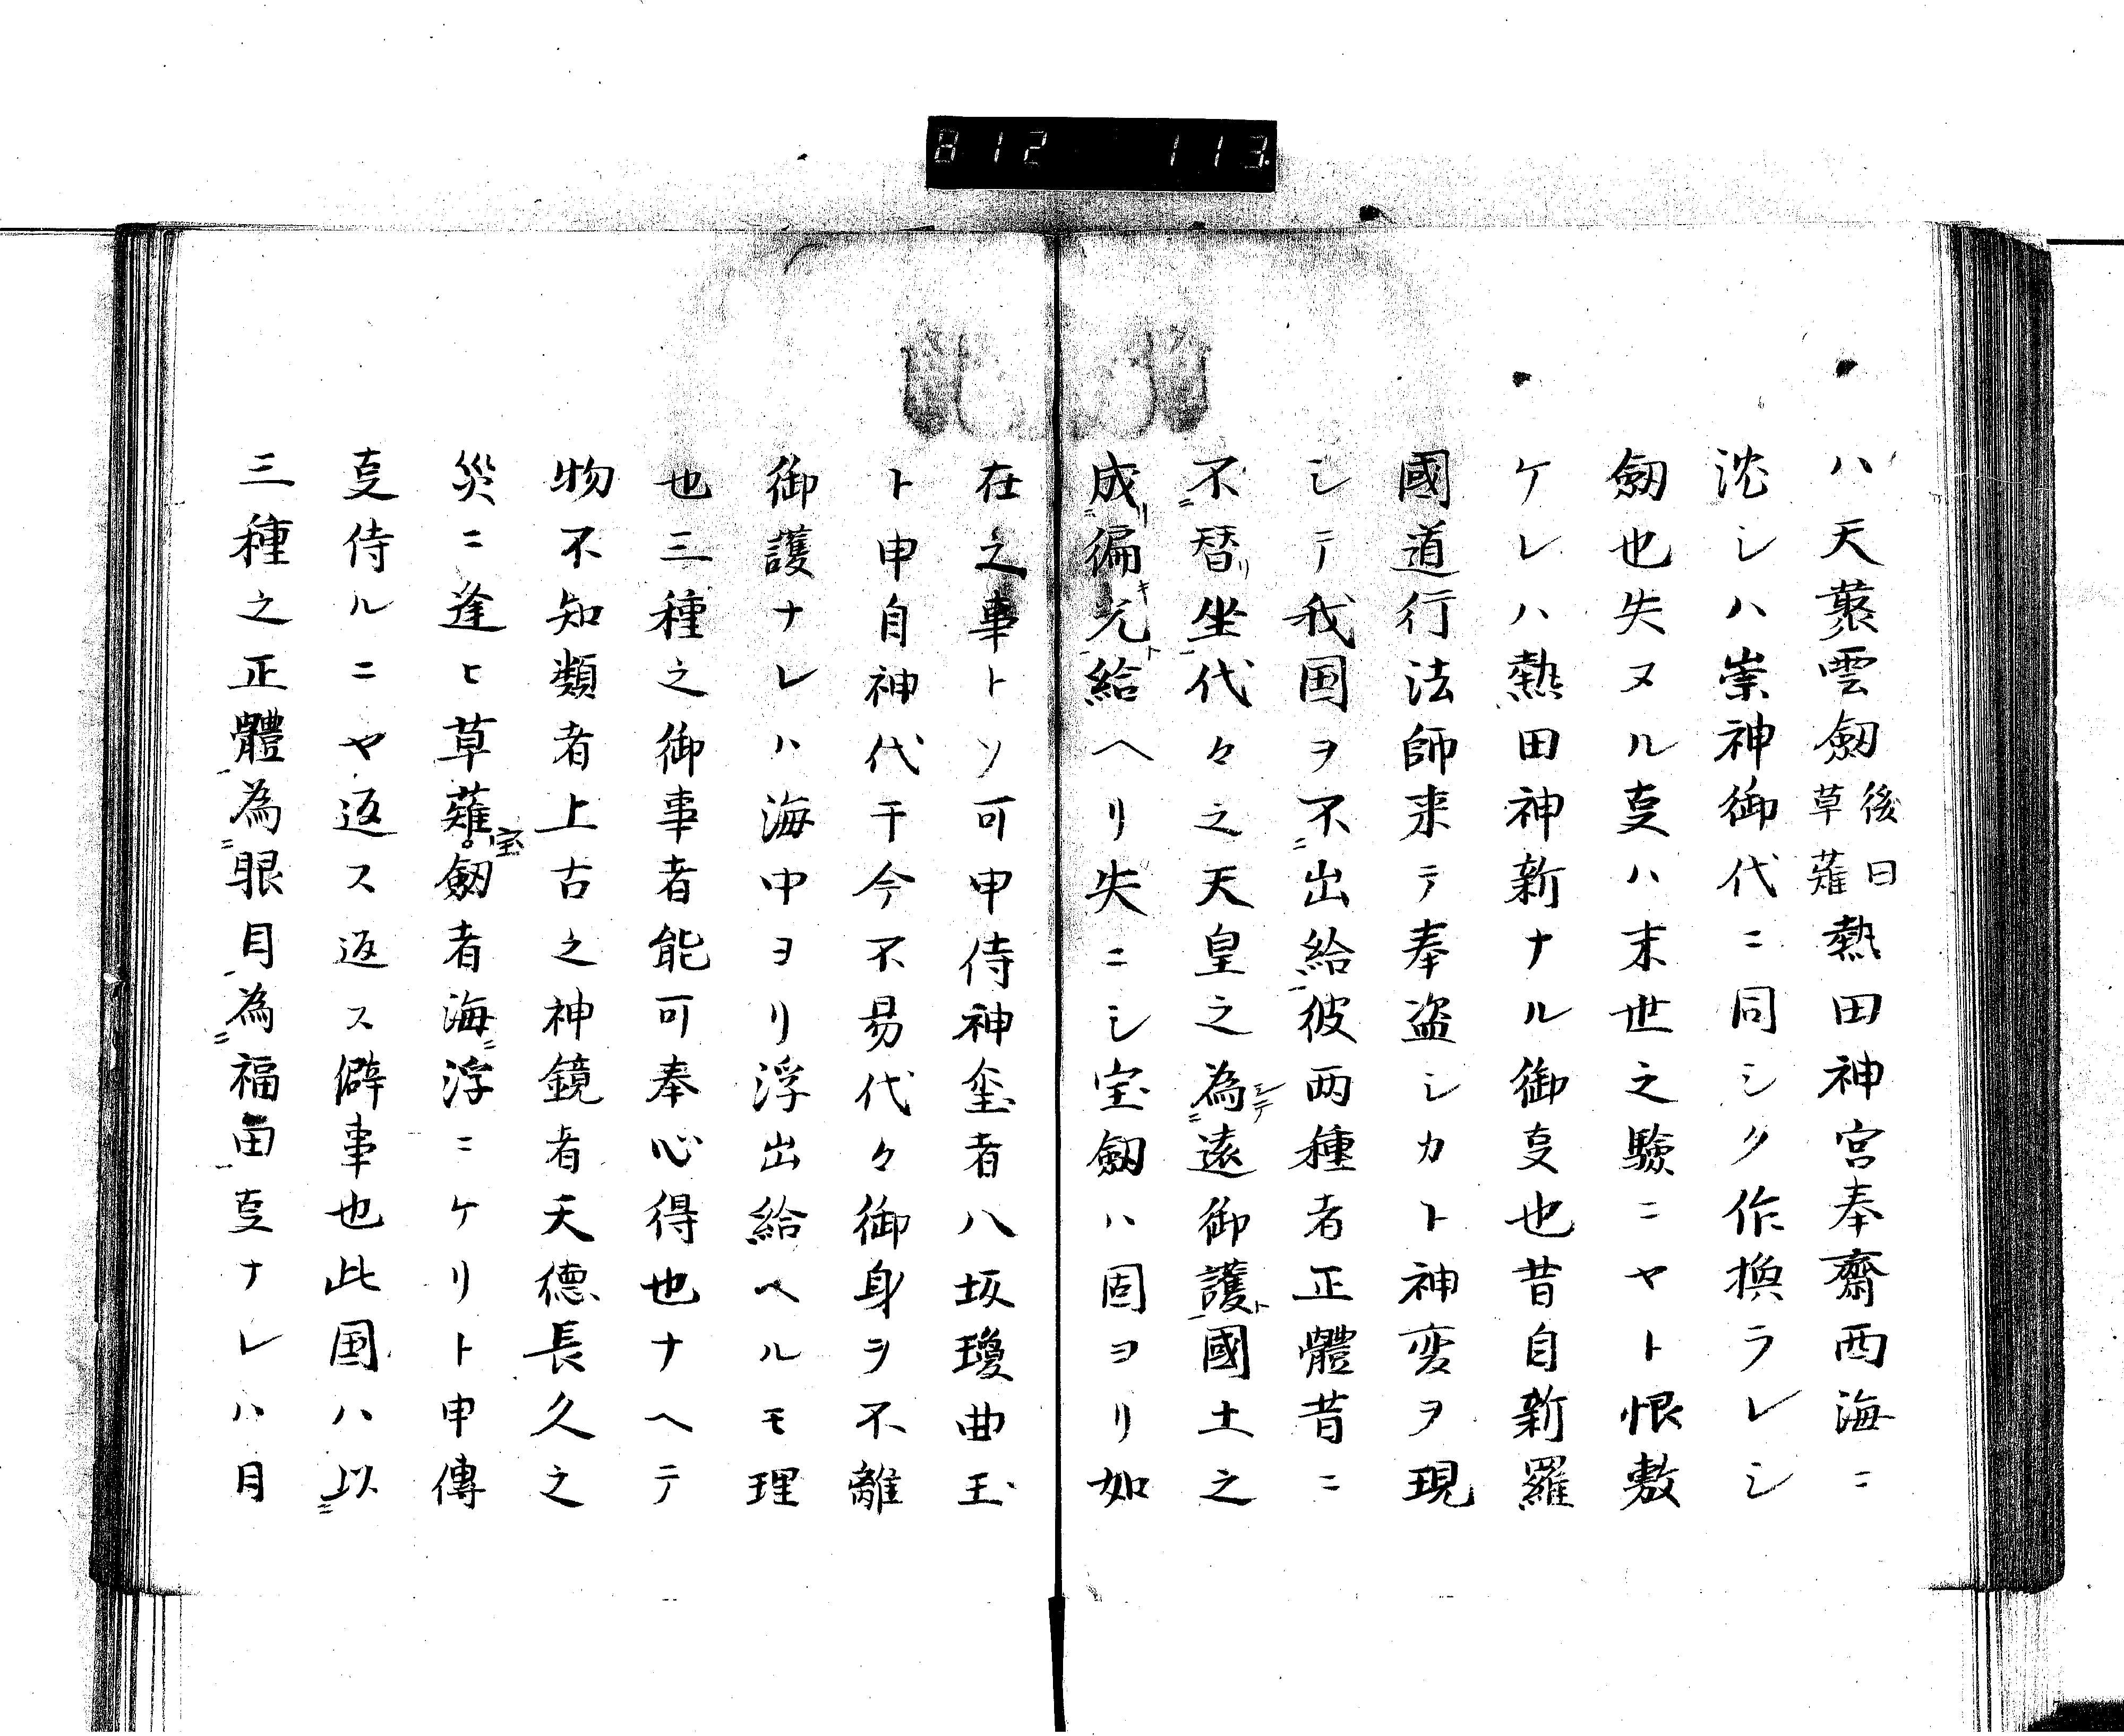 812 113
ハ天藂雲劔後曰草薙熱田神宮奉齋西海ニ
沈シハ崇神御代ニ同シク作換ラレシ
劔也失ヌル㕝ハ末世之驗ニヤト恨敷
ケレハ熱田神新ナル御㕝也昔自新羅
國道行法師来テ奉盗シカト神変ヲ現
シテ我国ヲ不二出給一彼両種者正體昔ニ
不二替リ坐一代々之天皇之為シテ二遠御護ト一國土之
成リ二徧キ光ト一給ヘリ失ニシ宝劔ハ固ヨリ如
在之事トソ可申侍神璽者八坂瓊曲玉
ト申自神代于今不易代々御身ヲ不離
御護ナレハ海中ヨリ浮出給ヘルモ理
也三種之御事者能可奉心得也ナヘテ
物不知類者上古之神鏡者天德長久之
災ニ逢ヒ草薙宝劔者海ニ浮ニケリト申傳
㕝侍ルニヤ返ス返ス僻事也此国ハ以二
三種之正體一為二眼目一為二福田一㕝ナレハ月